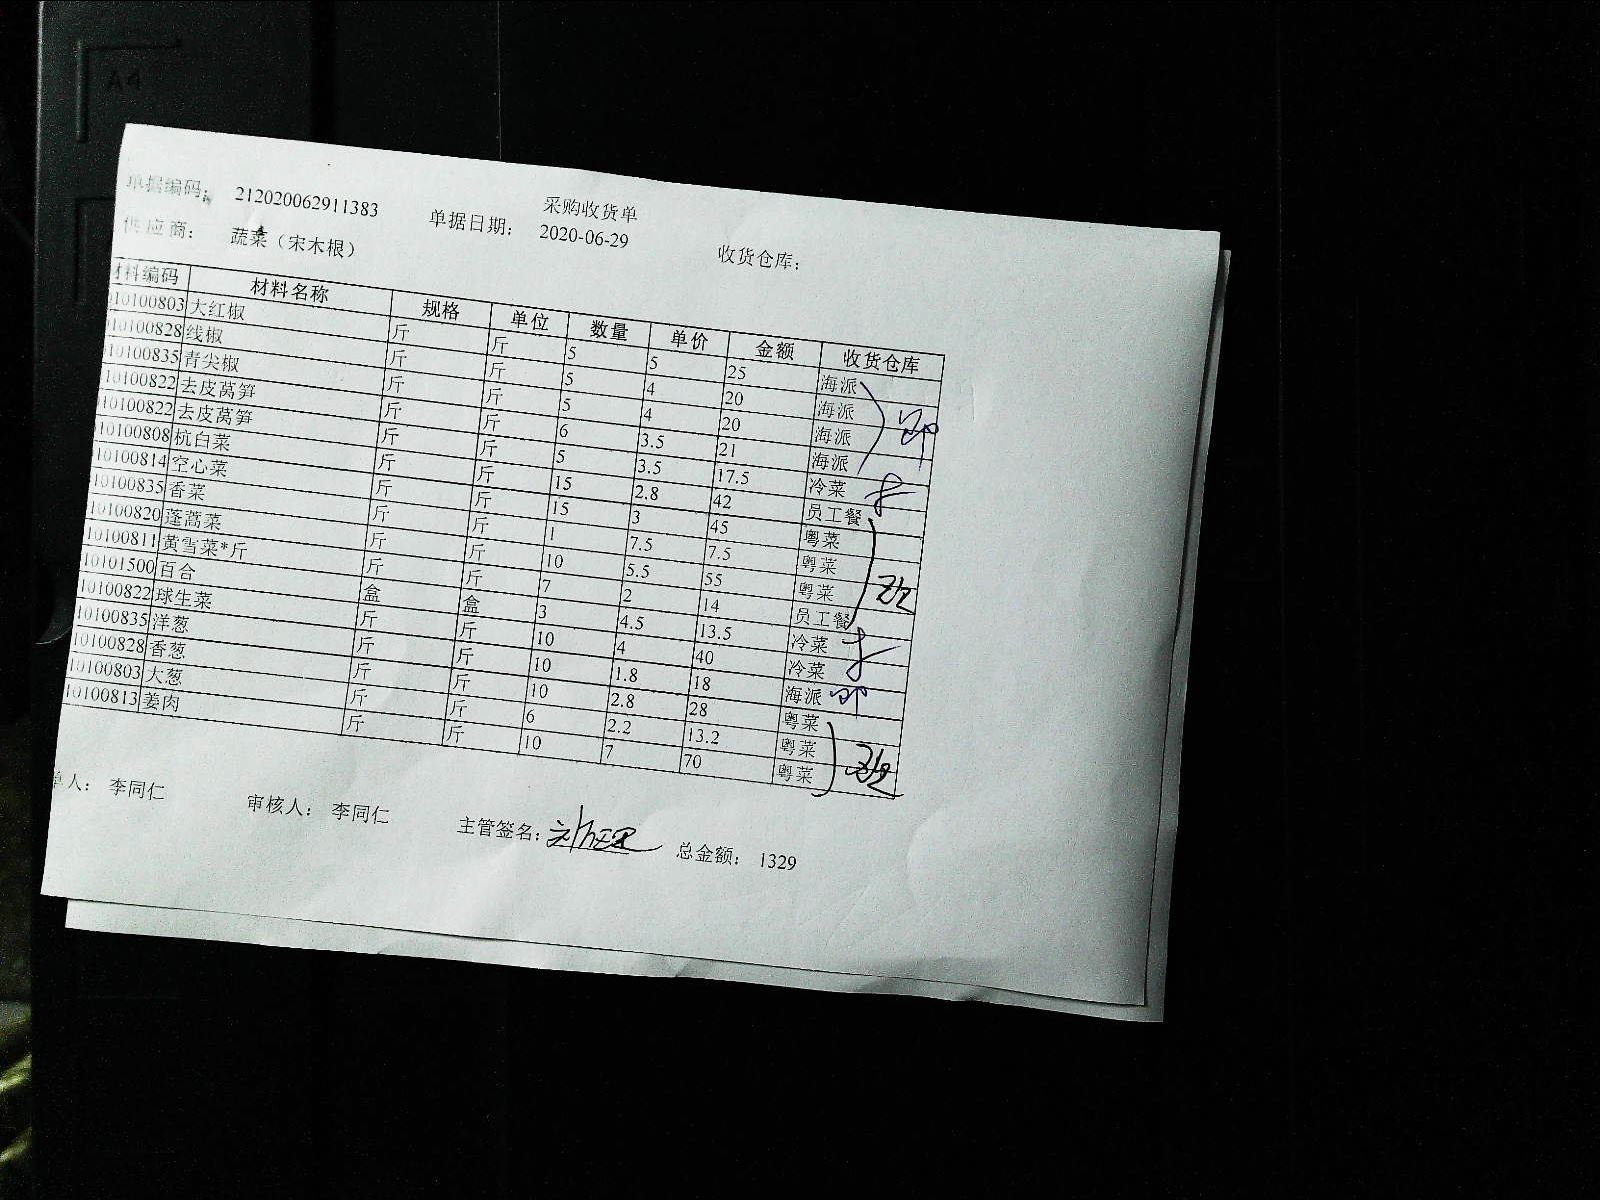 A4
采购收货单
单据编码： 212020062911383 单据日期： 2020-06-29 收货仓库：
供应商： 蔬菜（宋木根）
材料编码 材料名称 规格 单位 数量 单价 金额 收货仓库
10100803 大红椒 斤 斤 5 5 25 海派
10100828 线椒 斤 斤 5 4 20 海派
10100835 青尖椒 斤 斤 5 4 20 海派
10100822 去皮莴笋 斤 斤 6 3.5 21 海派
10100822 去皮莴笋 斤 斤 5 3.5 17.5 冷菜
10100808 杭白菜 斤 斤 15 2.8 42 员工餐
10100814 空心菜 斤 斤 15 3 45 粤菜
10100835 香菜 斤 斤 1 7.5 7.5 粤菜
10100820 蓬蒿菜 斤 斤 10 5.5 55 粤菜
10100811 黄雪菜*斤 斤 斤 7 2 14 员工餐
10101500 百合 盒 盒 3 4.5 13.5 冷菜
10100822 球生菜 斤 斤 10 4 40 冷菜
10100835 洋葱 斤 斤 10 1.8 18 海派
10100828 香葱 斤 斤 10 2.8 28 粤菜
10100803 大葱 斤 斤 6 2.2 13.2 粤菜
10100813 姜肉 斤 斤 10 7 70 粤菜
单人： 李同仁 审核人： 李同仁 主管签名： 总金额： 1329